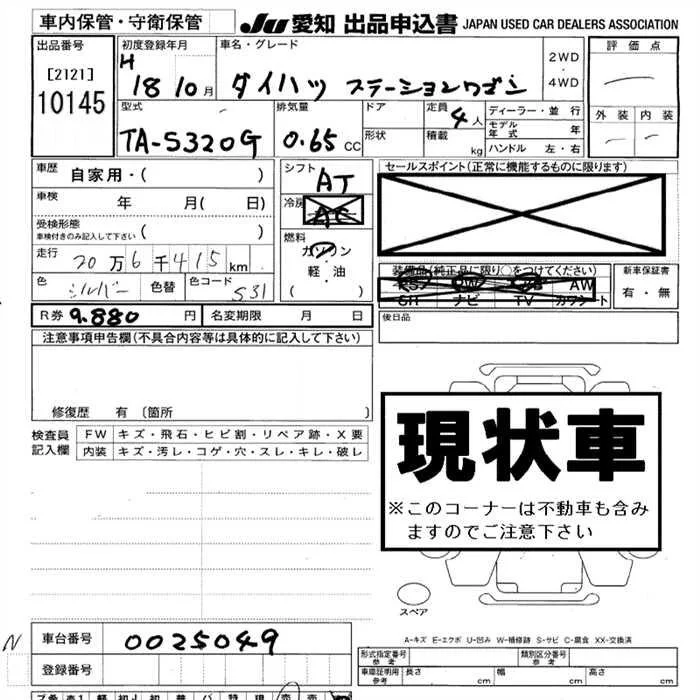 車内保管・守衛保管 JU 愛知 出品申込書 JAPAN USED CAR DEALERS ASSOCIATION
出品番号 初度登録年月 車名・グレード 2WD 評価点
[2121] H 18 10月 ダイハツ ステーションワゴン 4WD
10145 型式 排気量 ドア 定員 4人 ディーラー・並行 外装 内装
TA-S320G 0.65 CC 形状 積載 kg モデル年式 年
ハンドル 左・右
車歴 自家用・( ) シフト AT セールスポイント(正常に機能するものに限ります)
車検 年 月( 日) 冷房 AC
受検形態 車検付きのみ記入して下さい ( ) 燃料 ガソリン
走行 20万6千415km 軽・油 装備品(純正品に限り○をつけてください) 新車保証書
色 シルバー 色替 色コード S31 ( ) PS PW AW 有・無
SH ナビ TV カワシート
R券 9.880円 名変期限 月 日 後日品
注意事項申告欄(不具合内容等は具体的に記入して下さい)
修復歴 有 〔箇所 〕
検査員 FW キズ・飛石・ヒビ割・リペア跡・X要
記入欄 内装 キズ・汚レ・コゲ・穴・スレ・キレ・破レ
現状車
※このコーナーは不動車も含み
ますのでご注意下さい
スペア
A-キズ E-エクボ U-凹み W-補修跡 S-サビ C-腐食 XX-交換済
N 車台番号 0025049 形式指定番号 参考 類別区分番号 参考
登録番号 車庫証明用 参考 長さ cm 幅 cm 高さ cm